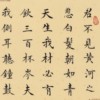 君不見黃河之
悲白髮朝如青
天生我材必有
飲三百杯岑夫
我側耳聽鐘鼓